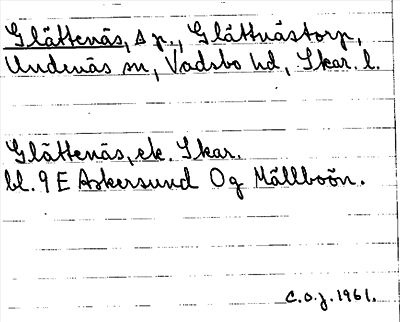 Glättenäs, s p., Glättnästorp,
Undenäs sn, Vadsbo hd, Skar. l.
Glättenäs, ek. Skar.
bl. 9 E Askersund Og Mållboön.
C.O.J. 1961.